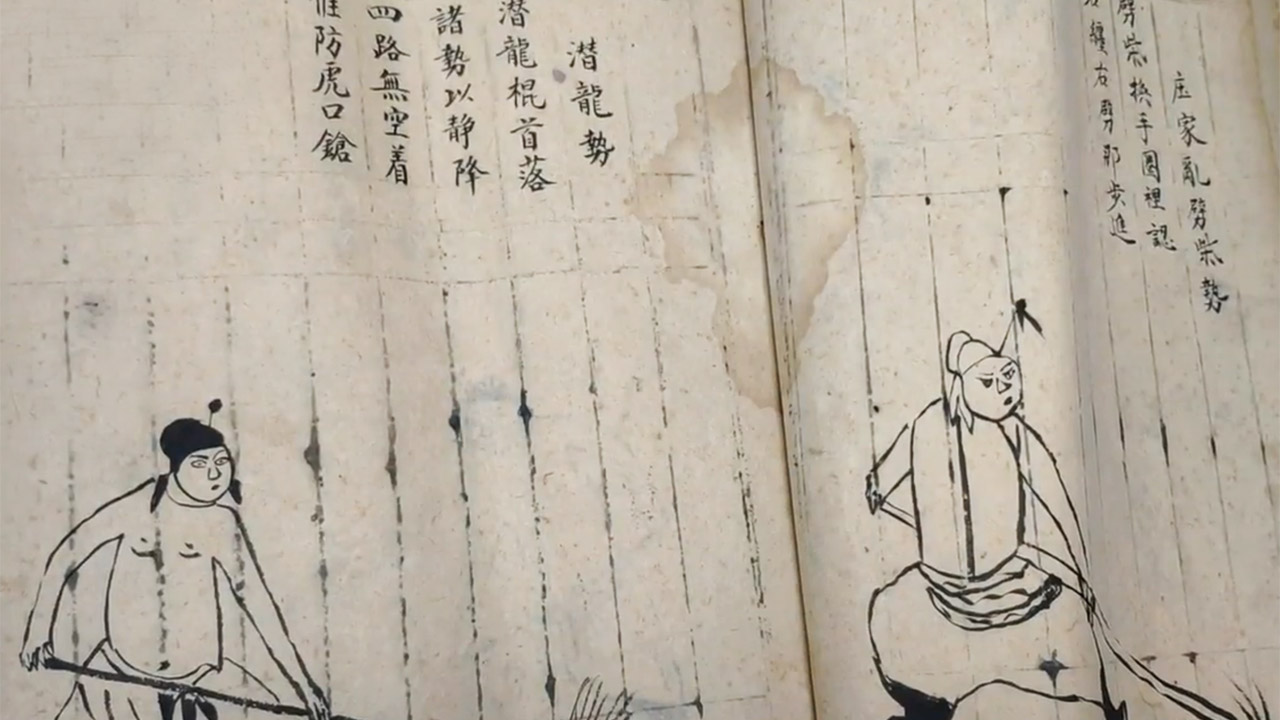 庄家亂劈柴勢
劈柴換手圈裡認
纏右劈那步進
潜龍勢
潜龍棍首落
諸勢以静降
四路無空着
惟防虎口鎗